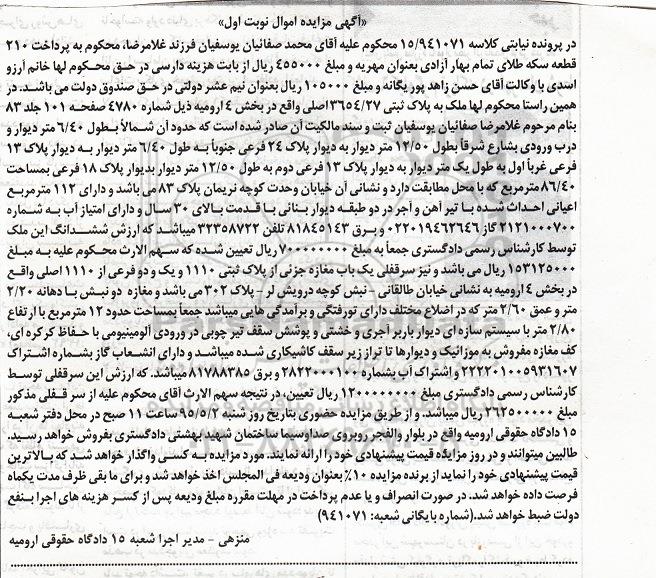 «آگهی مزایده اموال نوبت اول»
در پرونده نیابتی کلاسه ۱۵/۹۴۱۰۷۱ محکوم علیه آقای محمد صفائیان یوسفیان فرزند غلامرضا، محکوم به پرداخت ۲۱۰
قطعه سکه طلای تمام بهار آزادی بعنوان مهریه و مبلغ ۴۵۵۰۰۰ ریال از بابت هزینه دارسی در حق محکوم لها خانم آرزو
اسدی با وکالت آقای حسن زاهد پور یگانه و مبلغ ۱۰۵۰۰۰ ریال بعنوان نیم عشر دولتی در حق صندوق دولت می باشد. در
همین راستا محکوم لها ملک به پلاک ثبتی ۳۶۵۴/۲۷ اصلی واقع در بخش ۴ ارومیه ذیل شماره ۴۷۸۰ صفحه ۱۰۱ جلد ۸۳
بنام مرحوم غلامرضا صفائیان یوسفیان ثبت و سند مالکیت آن صادر شده است که حدود آن شمالاً بطول ۶/۴۰ متر دیوار و
درب ورودی بشارع شرقاً بطول ۱۲/۵۰ متر دیوار به دیوار پلاک ۲۴ فرعی جنوباً به طول ۶/۴۰ متر دیوار به دیوار پلاک ۱۳
فرعی غرباً اول به طول یک متر دیوار به دیوار پلاک ۱۳ فرعی دوم به طول ۱۲/۵۰ متر دیوار بدیوار پلاک ۱۸ فرعی بمساحت
۸۶/۴۰ مترمربع که با محل مطابقت دارد و نشانی آن خیابان وحدت کوچه نریمان پلاک ۸۳ می باشد و دارای ۱۱۲ مترمربع
اعیانی احداث شده با تیر آهن و آجر در دو طبقه دیوار بنائی با قدمت بالای ۳۰ سال و دارای امتیاز آب به شماره
۲۱۲۱۰۰۰۷۰۰ گاز ۰۲۲۰۱۹۴۶۳۶۴۶ و برق ۸۱۸۴۵۱۴۳ تلفن ۳۲۳۵۸۷۲۲ میباشد که ارزش ششدانگ این ملک
توسط کارشناس رسمی دادگستری جمعاً به مبلغ ۷۰۰۰۰۰۰۰۰۰ ریال تعیین شده که سهم الارث محکوم علیه به مبلغ
۱۵۳۱۲۵۰۰۰ ریال می باشد و نیز سرقفلی یک باب مغازه جزئی از پلاک ثبتی ۱۱۱۰ و یک و دو فرعی از ۱۱۱۰ اصلی واقع
در بخش ۴ ارومیه به نشانی خیابان طالقانی - نبش کوچه درویش لر - پلاک ۳۰۲ می باشد و مغازه دو نبش با دهانه ۲/۲۰
متر و عمق ۲/۶۰ متر که در اضلاع مختلف دارای تورفتگی و برآمدگی هایی میباشد جمعاً بمساحت حدود ۱۲ مترمربع با ارتفاع
۲/۸۰ متر با سیستم سازه ای دیوار باربر آجری و خشتی و پوشش سقف تیر چوبی در ورودی آلومینیومی با حفاظ کرکره ای،
کف مغازه مفروش به موزائیک و دیوارها تا تراز زیر سقف کاشیکاری شده میباشد و دارای انشعاب گاز بشماره اشتراک
۲۲۲۲۰۱۰۰۵۹۳۱۶۰۷ و اشتراک آب بشماره ۲۸۲۲۰۰۰۱۰۰ و برق ۸۱۷۸۸۳۸۵ میباشد. که ارزش این سرقفلی توسط
کارشناس رسمی دادگستری مبلغ ۱۲۰۰۰۰۰۰۰۰ ریال تعیین، در نتیجه سهم الارث آقای محکوم علیه از سر قفلی مذکور
مبلغ ۲۶۲۵۰۰۰۰۰ ریال میباشد. و از طریق مزایده حضوری بتاریخ روز شنبه ۹۵/۵/۲ ساعت ۱۱ صبح در محل دفتر شعبه
۱۵ دادگاه حقوقی ارومیه واقع در بلوار والفجر روبروی صداوسیما ساختمان شهید بهشتی دادگستری بفروش خواهد رسید.
طالبین میتوانند و در روز مزایده قیمت پیشنهادی خود را ارائه نمایند. مورد مزایده به کسی واگذار خواهد شد که بالاترین
قیمت پیشنهادی خود را نماید از برنده مزایده ۱۰٪ بعنوان ودیعه فی المجلس اخذ خواهد شد و برای ما بقی ظرف مدت یکماه
فرصت داده خواهد شد. در صورت انصراف و یا عدم پرداخت در مهلت مقرره مبلغ ودیعه پس از کسر هزینه های اجرا بنفع
دولت ضبط خواهد شد.(شماره بایگانی شعبه: ۹۴۱۰۷۱)
منزهی - مدیر اجرا شعبه ۱۵ دادگاه حقوقی ارومیه